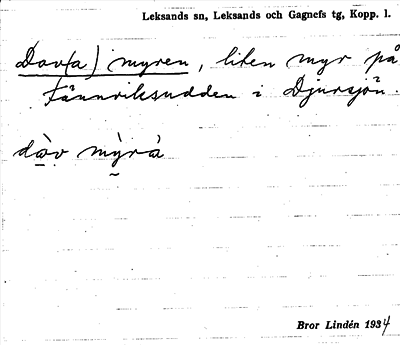 Leksands sn, Leksands och Gagnefs tg, Kopp. l.
Dav(a) myren, liten myr på
Fännriksudden i Djursjön.
dàv mỳrà
Bror Lindén 1934